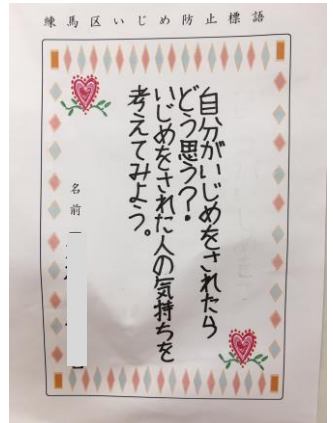 練馬区いじめ防止標語
自分がいじめをされたら
どう思う?.
いじめをされた人の気持ちを
考えてみよう。
名前